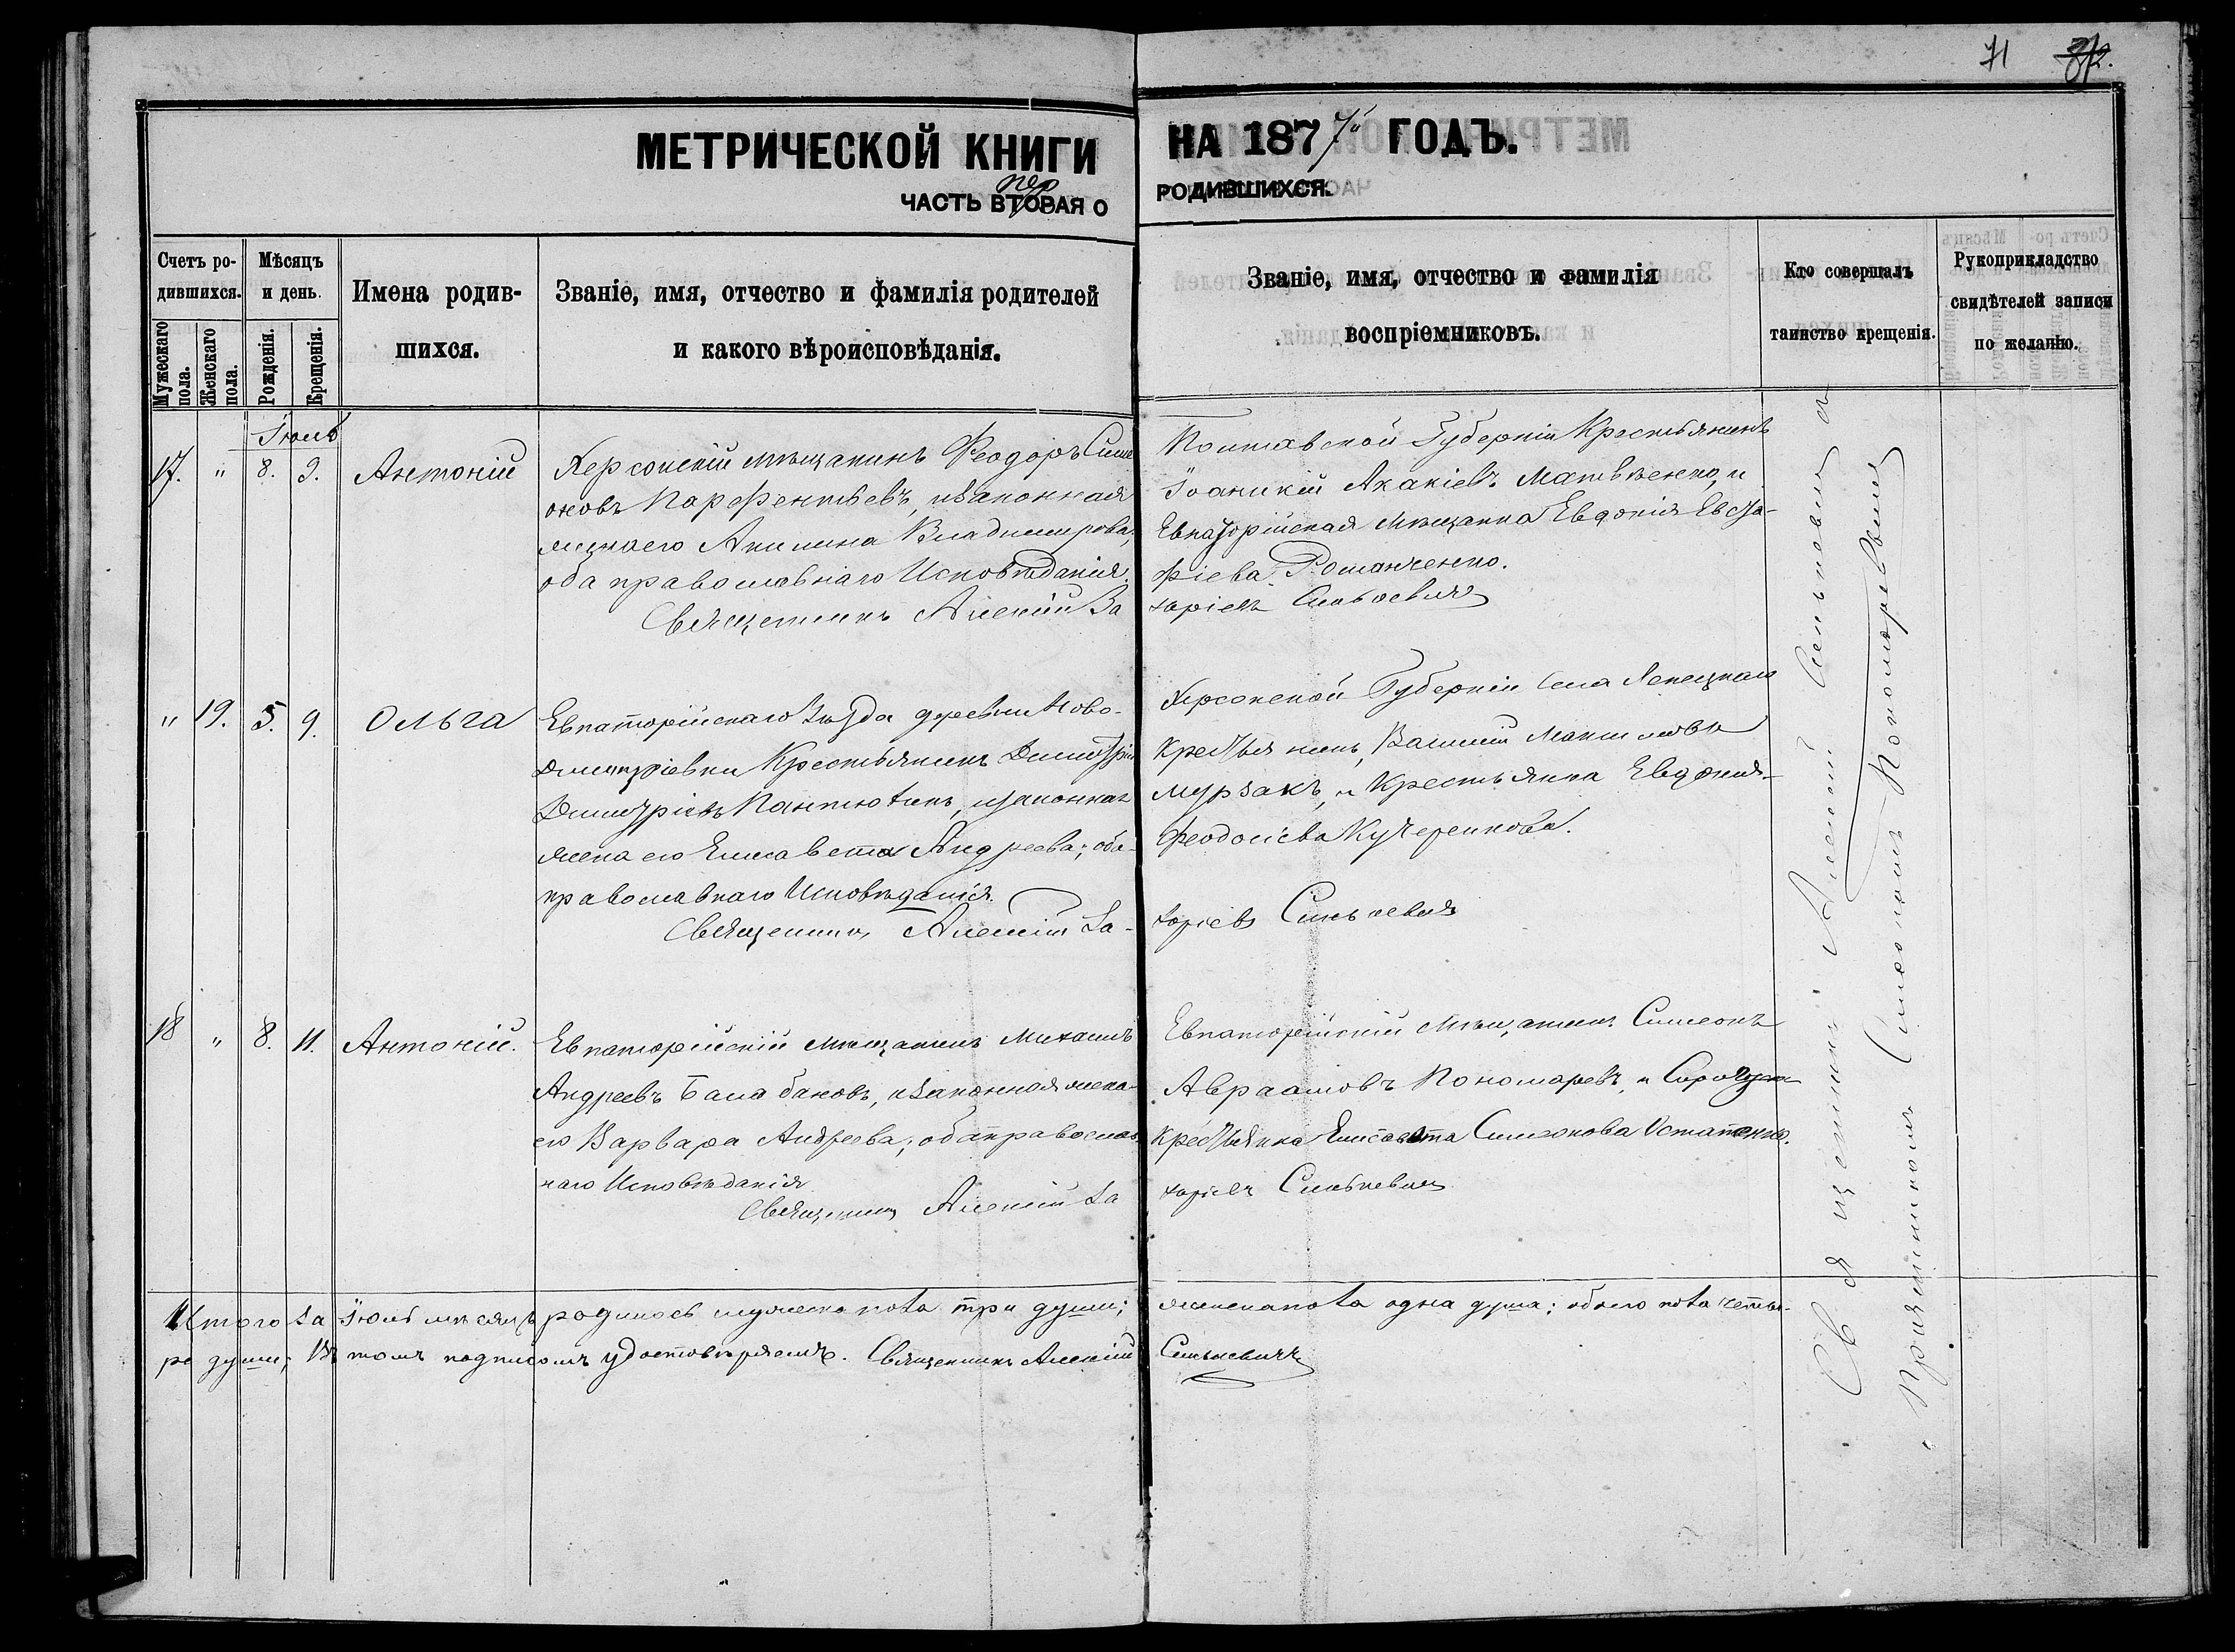 71
МЕТРИЧЕСКОЙ КНИГИ НА 1877й ГОДЪ.
пер
ЧАСТЬ ВТОРАЯ О РОДИВШИХСЯ.
Счетъ ро-
дившихся.
Мужескаго пола.
Женскаго пола.
Мѣсяцъ
и день.
Рожденія.
Крещенія.
Имена родив-
шихся.
Званіе, имя, отчество и фамилія родителей
и какого вѣроисповѣданія.
Званіе, имя, отчество и фамилія
воспріемниковъ.
Кто совершалъ
таинство крещенія.
Рукоприкладство
свидѣтелей записи
по желанію.
Іюль
17. " 8. 9. Антоній
Херсонскій мѣщанинъ Феодоръ Симе
оновъ Парфентьевъ, и законная
жена его Акилина Владимирова,
оба православнаго Исповѣданія.
Священникъ Алексій За
Полтавской Губерніи Крестьянинъ
Іоаникій Акакіевъ Матвѣенко, и
Евпаторійская Мѣщанка Евдокія Евста-
фіева Романченко.
харіевъ Синькевичъ
" 19. 5. 9. Ольга
Евпаторійскаго Уѣзда деревни Ново-
Димитріевки Крестьянинъ Димитрій
Димитріевъ Пантютинъ, и законная
жена его Елисавета Андреева; оба
православнаго Исповѣданія.
Священникъ Алексій За-
Херсонской Губерніи села
Крестьянинъ, Василій Максимовъ
Мурзакъ, и Крестьянка Евдокія
Феодосіева Кучеренкова.
харіевъ Синькевичъ
18 " 8. 11. Антоній.
Евпаторійскій мѣщанинъ Михаилъ
Андреевъ Балабановъ, и законная жена
его Варвара Андреева; оба православ
наго Исповѣданія
Священникъ Алексій За
Евпаторійскій Мѣщанинъ Симеонъ
Авраамовъ Пономаревъ, и
Крестьянка Елисавета Симеонова Остапенко.
харіевъ Синькевичъ
Священникъ Алексій Синькевичъ съ
Причетникомъ Симеономъ Пономаревымъ
Итого за Іюль мѣсяцъ родилось мужеска пола три души; женска пола одна душа; обоего пола четы-
ре души; Въ томъ подписомъ удостовѣряемъ. Священникъ Алексій Синькевичъ